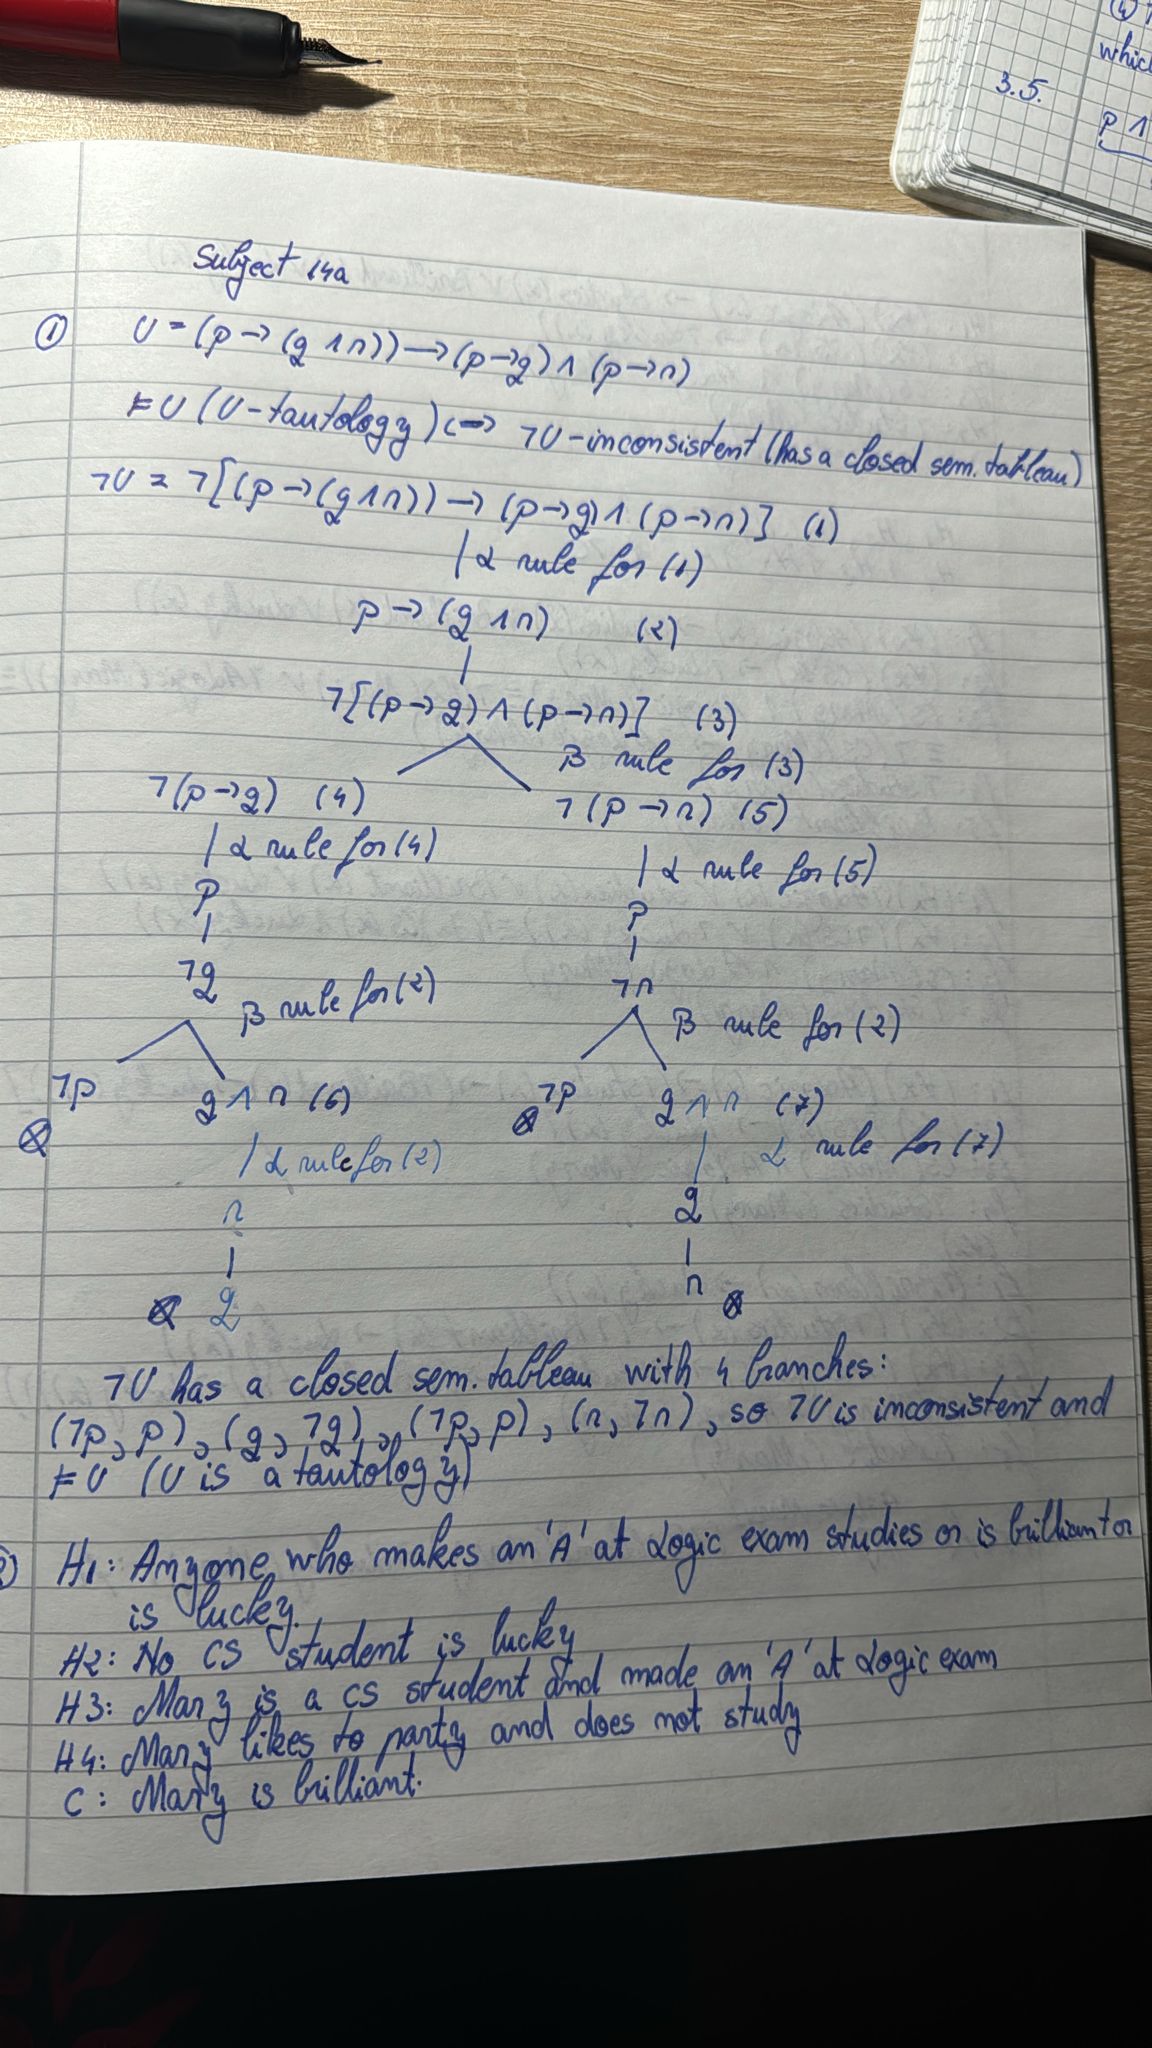 which
3.5.
p ∧
Subject 14a
① U = (p → (q ∧ r)) → (p → q) ∧ (p → r)
⊨ U (U - tautology) <=> ¬U - inconsistent (has a closed sem. tableau)
¬U = ¬[(p → (q ∧ r)) → (p → q) ∧ (p → r)] (1)
| α rule for (1)
p → (q ∧ r) (2)
|
¬[(p → q) ∧ (p → r)] (3)
β rule for (3)
¬(p → q) (4) ¬(p → r) (5)
| α rule for (4) | α rule for (5)
p p
| |
¬q ¬r
β rule for (2) β rule for (2)
¬p q ∧ r (6) ¬p q ∧ r (7)
⊗ ⊗
| α rule for (2) | α rule for (7)
r q
| |
⊗ q r ⊗
¬U has a closed sem. tableau with 4 branches:
(¬p, p), (q, ¬q), (¬p, p), (r, ¬r), so ¬U is inconsistent and
⊨ U (U is a tautology)
H1: Anyone who makes an 'A' at Logic exam studies or is brilliant or
is lucky.
H2: No CS student is lucky
H3: Mary is a CS student and made an 'A' at Logic exam
H4: Mary likes to party and does not study
C: Mary is brilliant.